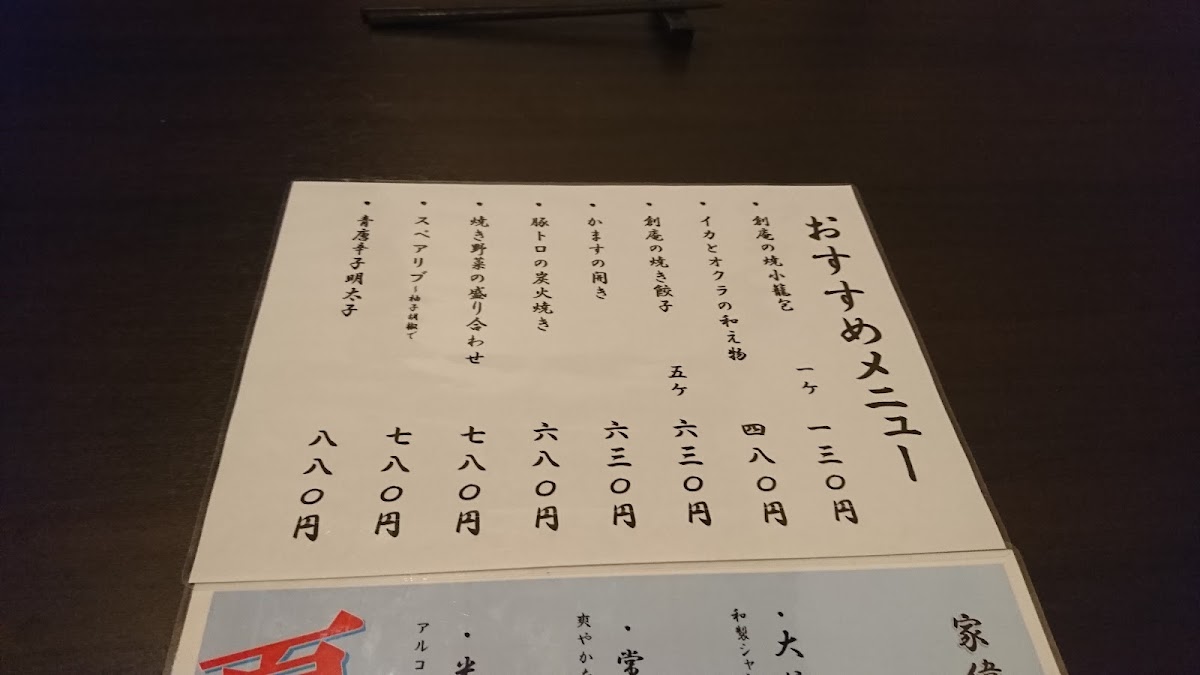 おすすめメニュー
・創庵の焼小籠包 一ヶ 一三〇円
・イカとオクラの和え物 四八〇円
・創庵の焼き餃子 五ヶ 六三〇円
・かますの開き 六三〇円
・豚トロの炭火焼き 六八〇円
・焼き野菜の盛り合わせ 七八〇円
・スペアリブ~柚子胡椒で 七八〇円
・青唐辛子明太子 八八〇円
家
・大
和製シャ
・常
爽やかな
・米
アルコ
夏